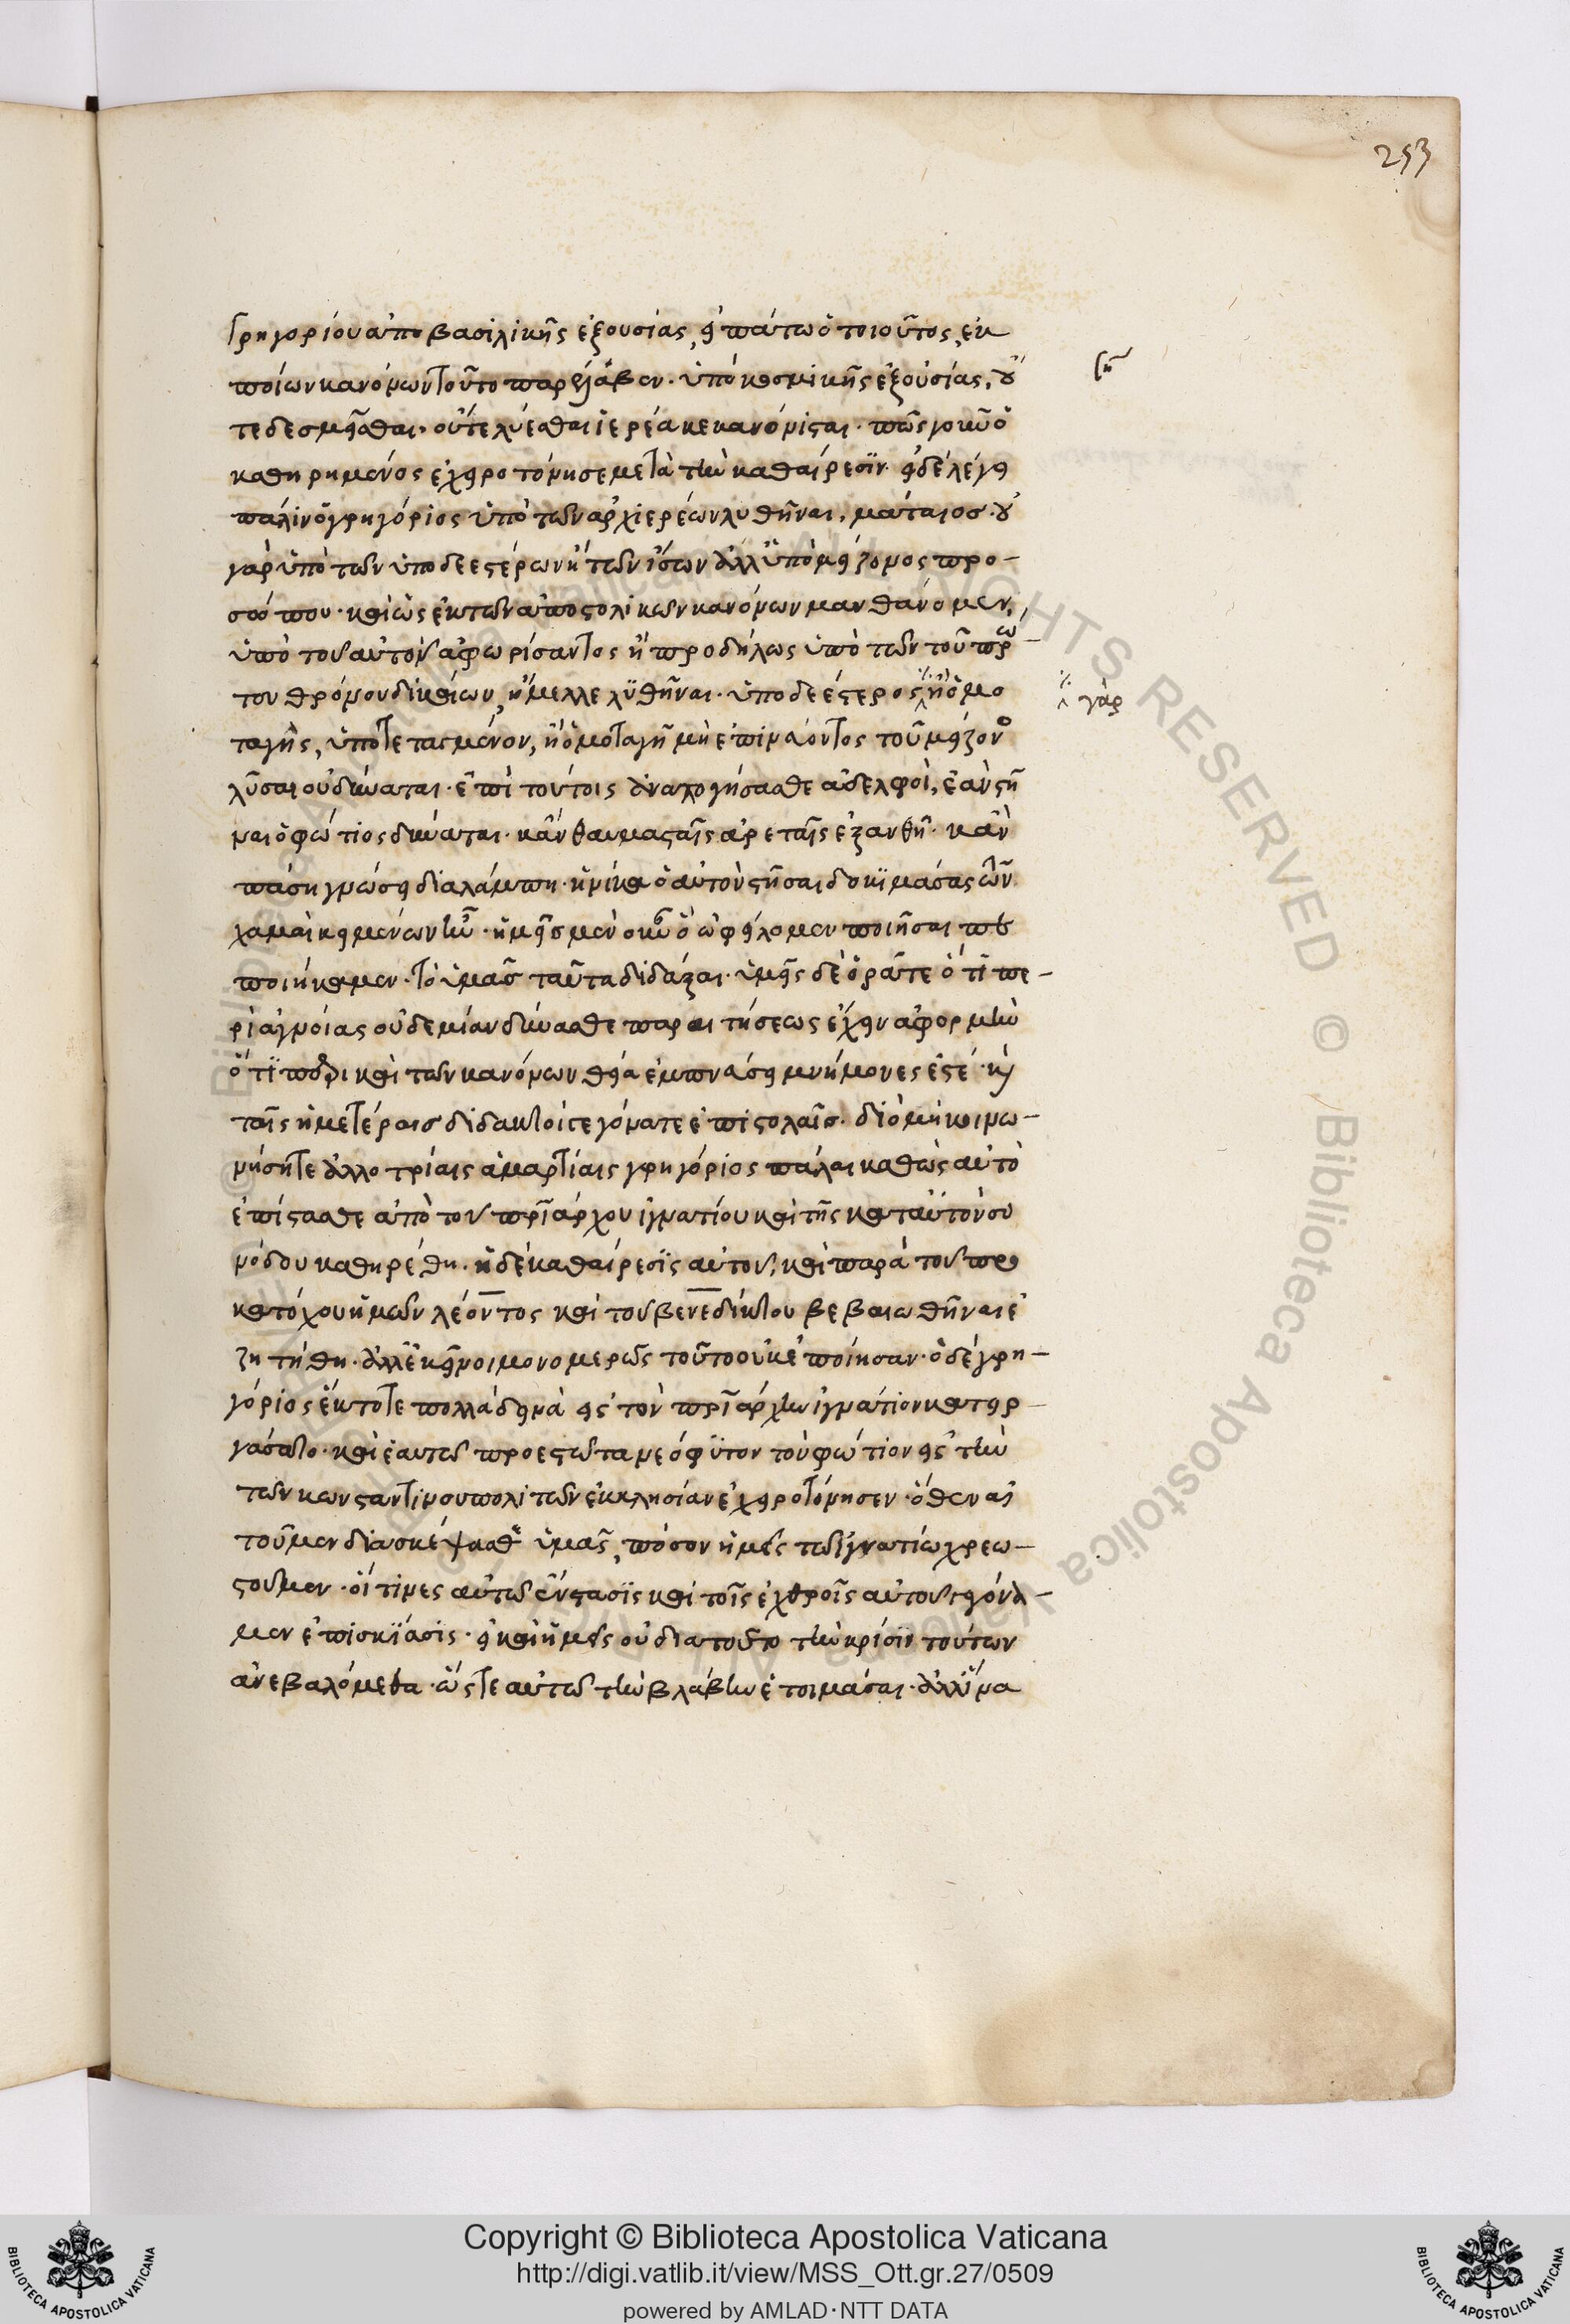 253
Γρηγορίου ἀπὸ βασιλικῆς ἐξουσίας, εἰ πάτω ὁ τοιοῦτος, ἐκ
ποίων κανόνων τοῦτο παρείλαβεν. ὑπὸ κοσμικῆς ἐξουσίας, οὔ
τε δεσμεῖσθαι οὔτε λύεσθαι ἱερέα κεκανόνισται. πῶς γοῦν ὁ
καθηρημένος ἐχειροτόνησε μετὰ τὴν καθαίρεσιν. εἰ δὲ λέγει
πάλιν ὁ γρηγόριος ὑπὸ τῶν ἀρχιερέων λυθῆναι, μάταιος. οὐ
γὰρ ὑπὸ τῶν ὑποδεεστέρων ἢ τῶν ἴσων ἀλλ' ὑπὸ μείζονος προ-
σώπου. καὶ ὡς ἐκ τῶν ἀποστολικῶν κανόνων μανθάνομεν,
ὑπὸ τοῦ αὐτὸν ἀφωρίσαντος ἢ προδήλως ὑπὸ τῶν τοῦ πρω-
του θρόνου δικαίων, ἤμελλε λυθῆναι. ὑποδεέστερος ἢ ὁμο
γὰρ
ταγὴς, ὑποτεταγμένον, ἢ ὁμοταγῆ μὴ ἐπινεύοντος τοῦ μείζονος
λῦσαι οὐ δύναται. ἐπὶ τούτοις ἀναλογήσασθε ἀδελφοὶ, ἐὰν στῆ
ναι ὁ φώτιος δύναται. κἂν θαυμασταῖς ἀρεταῖς ἐξανθῇ. κἂν
πάσῃ γνώσει διαλάμπῃ. ἡνίκα ὁ αὐτὸν στῆσαι δοκιμάσας ὢν
χαμαὶ κειμένων ἦν. ἡμεῖς μὲν οὖν ὃ ὠφείλομεν ποιῆσαι πε
ποιήκαμεν. τὸ ὑμᾶς ταῦτα διδάξαι. ὑμεῖς δὲ ὁρᾶτε ὅτι πε-
ρὶ ἀγνοίας οὐδεμίαν δύνασθε παραιτήσεως ἔχειν ἀφορμὴν
ὅτιπερ καὶ τῶν κανόνων θείᾳ ἐμπνεύσει μνήμονες ἐστέ. καὶ
ταῖς ἡμετέραις διδακτοί γεγόνατε ἐπιστολαῖς. διὸ μὴ κοινω-
νήσητε ἀλλοτρίαις ἁμαρτίαις γρηγόριος πάλαι καθὼς αὐτὸ
ἐπίστασθε ἀπὸ τοῦ πριάρχου ἰγνατίου καὶ τῆς κατ' αὐτὸν συ
νόδου καθηρέθη. ἡ δὲ καθαίρεσις αὐτοῦ, καὶ παρὰ τοῦ προ
κατόχου ἡμῶν λέοντος καὶ τοῦ βενεδίκτου βεβαιωθῆναι ἐ
ζητήθη. ἀλλ' ἐκεῖνοι μονομερῶς τοῦτο οὐκ ἐποίησαν. ὁ δὲ γρη-
γόριος ἔκτοτε πολλὰ δεινὰ εἰς τὸν πριάρχην ἰγνάτιον κατειρ-
γάσατο. καὶ ἑαυτῷ προεστῶτα νεόφυτον τὸν φώτιον εἰς τὴν
τῶν κωνσταντινουπολιτῶν ἐκκλησίαν ἐχειροτόνησεν. ὅθεν αἰ
τοῦμεν διασκέψασθ ὑμᾶς, πόσον ἡμεῖς τῷ ἰγνατίω χρεω-
στοῦμεν. οἵτινες αὐτῷ ἔνστασις καὶ τοῖς ἐχθροῖς αὐτοῦ γεγόνα-
μεν ἐπισκίασις. εἰ καὶ ἡμεῖς οὐ διατοῦτο τὴν κρίσιν τούτων
ἀνεβαλόμεθα. ὥστε αὐτῷ τὴν βλάβην ἑτοιμάσαι. ἀλλ' ἵνα
Copyright © Biblioteca Apostolica Vaticana
http://digi.vatlib.it/view/MSS_Ott.gr.27/0509
powered by AMLAD·NTT DATA